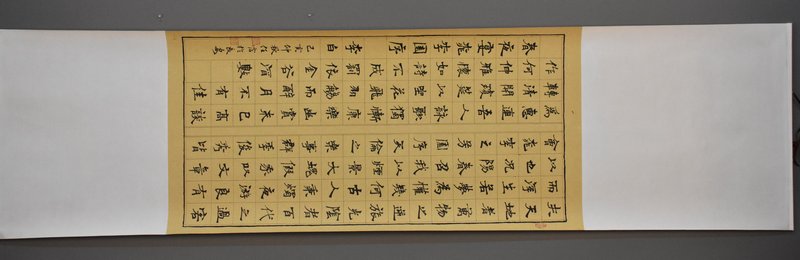 夫天地者萬物之逆旅光陰者百代之過客
而浮生若夢為歡幾何古人秉燭夜遊良有
以也況陽春召我以煙景大塊假我以文章
會桃李之芳園序天倫之樂事群季俊秀皆
為惠連吾人詠歌獨慚康樂幽賞未已高談
轉清開瓊筵以坐花飛羽觴而醉月不有佳
作何伸雅懷如詩不成罰依金谷酒數
春夜宴桃李園序 李白
己亥仲秋任